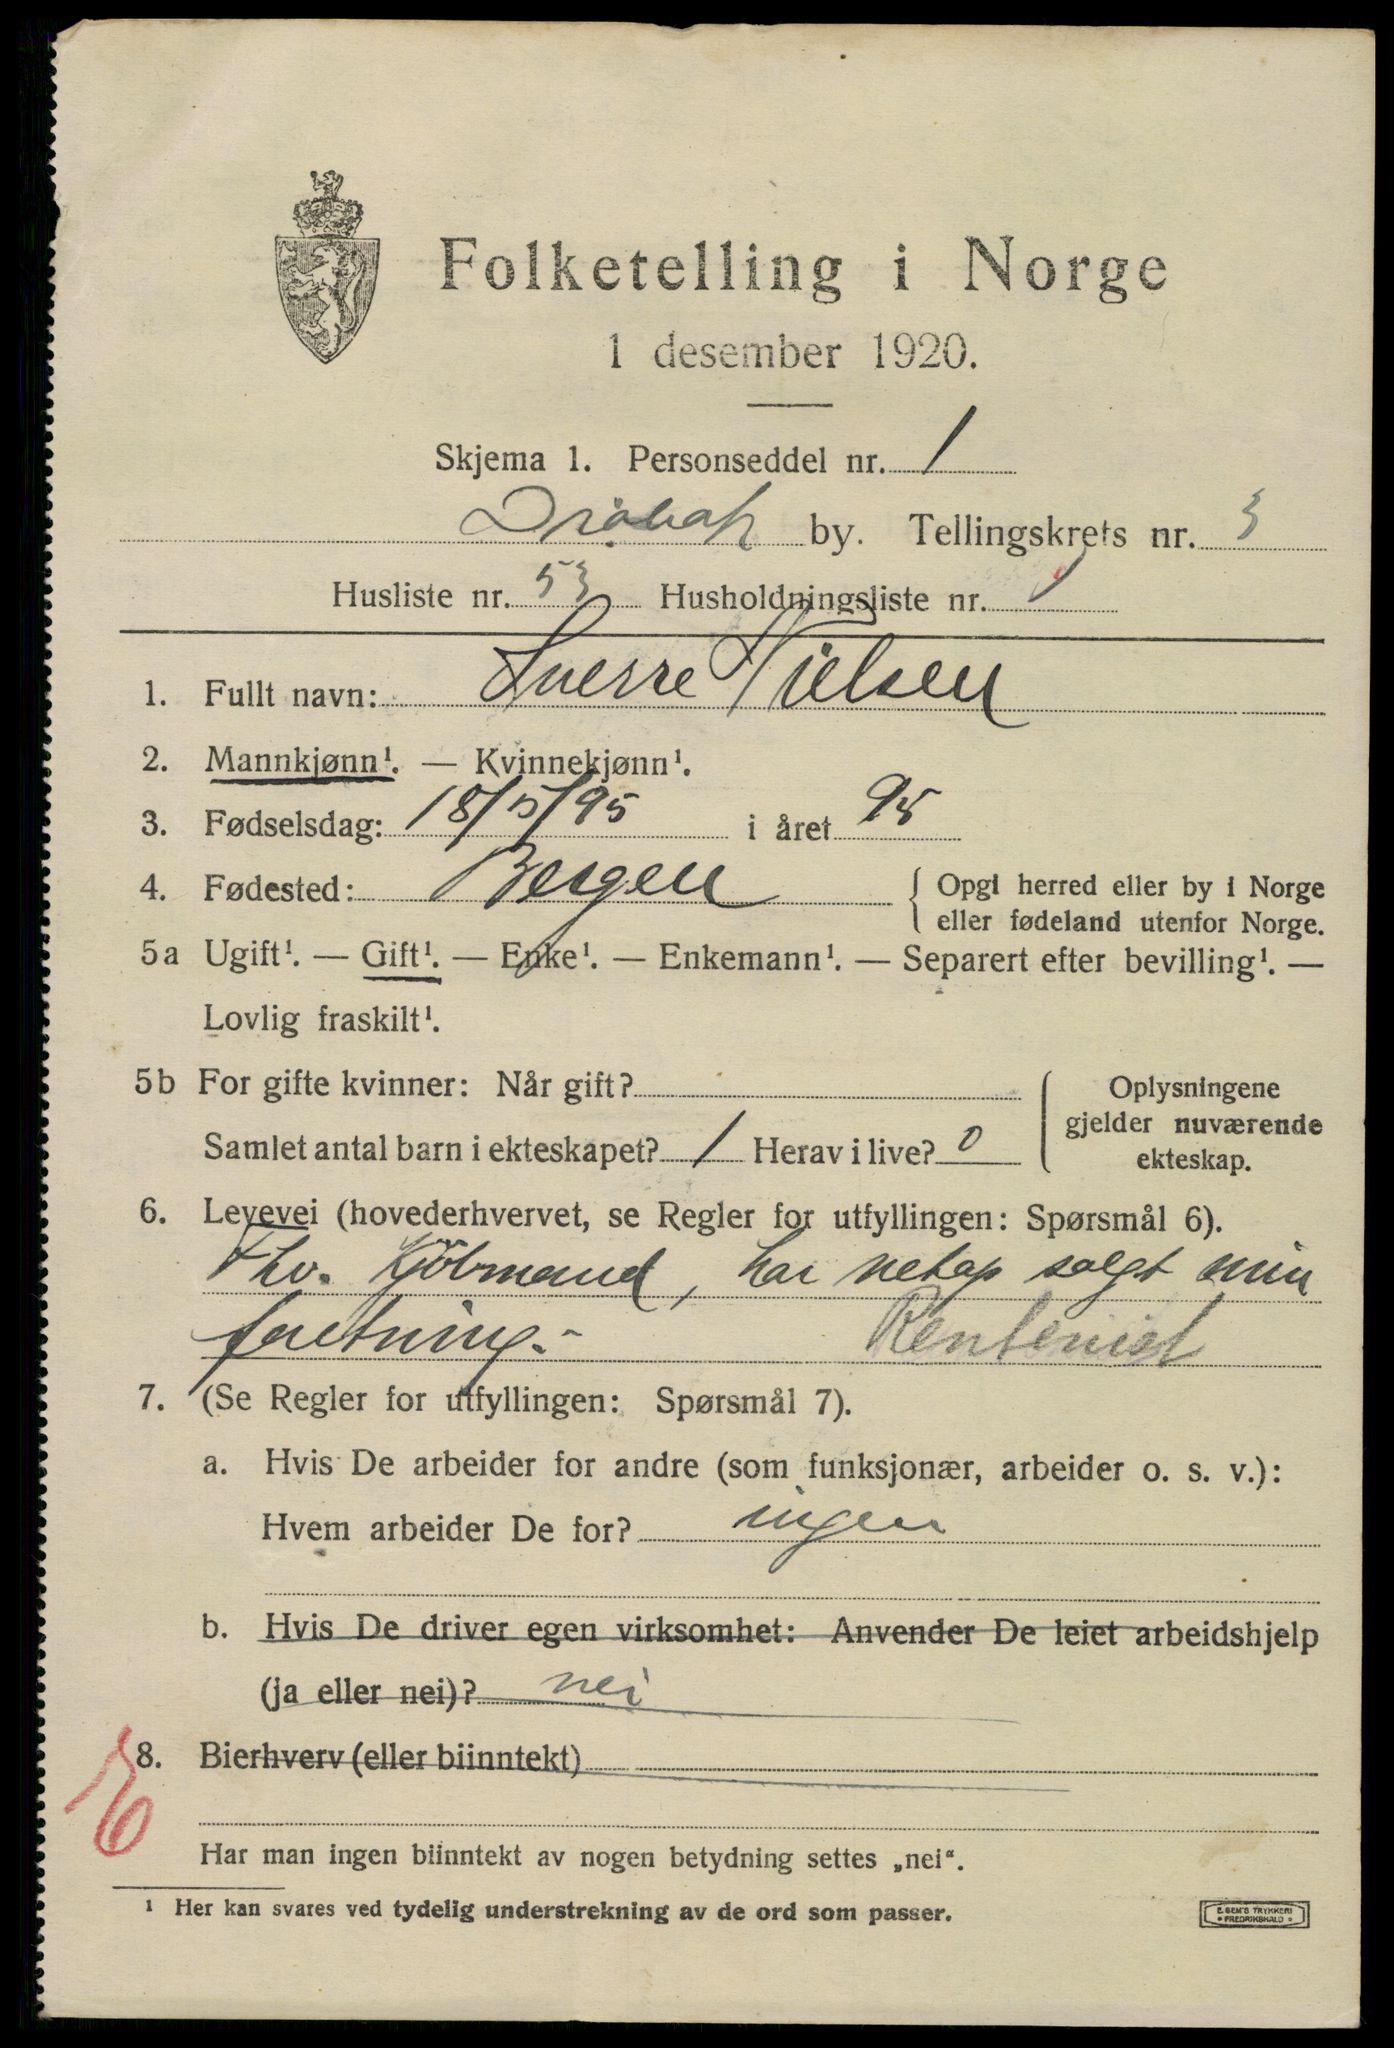 Folketelling i Norge
1 desember 1920.
Skjema 1. Personseddel nr. 1
Drøbak by. Tellingskrets nr. 3
Husliste nr. 53 Husholdningsliste nr. 1
1. Fullt navn: Sverre Nielsen
2. Mannkjønn¹. — Kvinnekjønn¹.
3. Fødselsdag: 18/5/95 i året 95
4. Fødested: Bergen { Opgi herred eller by i Norge
eller fødeland utenfor Norge.
5a Ugift¹. — Gift¹. — Enke¹. — Enkemann¹. — Separert efter bevilling¹. —
Lovlig fraskilt¹.
5b For gifte kvinner: Når gift? { Oplysningene
gjelder nuværende
Samlet antal barn i ekteskapet? 1 Herav i live? 0 ekteskap.
6. Levevei (hovederhvervet, se Regler for utfyllingen: Spørsmål 6).
Fhv. Kjöbmand, har netop solgt min
foretning.- Rentenist
7. (Se Regler for utfyllingen: Spørsmål 7).
a. Hvis De arbeider for andre (som funksjonær, arbeider o. s. v.):
Hvem arbeider De for? ingen
b. Hvis De driver egen virksomhet: Anvender De leiet arbeidshjelp
(ja eller nei)? nei
8. Bierhverv (eller biinntekt)
Har man ingen biinntekt av nogen betydning settes „nei“.
¹ Her kan svares ved tydelig understrekning av de ord som passer.
E. SEM'S TRYKKERI
• FREDRIKSHALD •